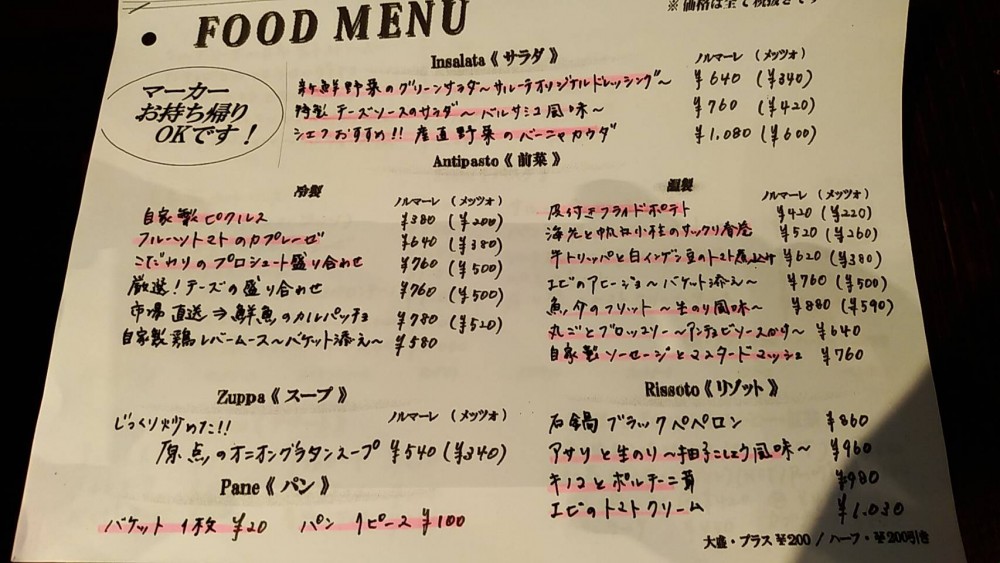 ※価格は全て税抜きです
• FOOD MENU
マーカー
お持ち帰り
OKです!
Insalata《サラダ》
ノルマーレ (メッツォ)
新鮮野菜のグリーンサラダ~サルーテオリジナルドレッシング~ ¥640 (¥340)
特製チーズソースのサラダ~バルサミコ風味~ ¥760 (¥420)
シェフおすすめ!! 産直野菜のバーニャカウダ ¥1,080 (¥600)
Antipasto《前菜》
冷製 ノルマーレ (メッツォ)
自家製ピクルス ¥380 (¥200)
フルーツトマトのカプレーゼ ¥640 (¥380)
こだわりのプロシュート盛り合わせ ¥760 (¥500)
厳送!チーズの盛り合わせ ¥760 (¥500)
市場直送⇒鮮魚のカルパッチョ ¥780 (¥520)
自家製鶏レバームース~バケット添え~ ¥580
温製 ノルマーレ (メッツォ)
皮付きフライドポテト ¥420 (¥220)
海老と帆立小柱のサックリ香草 ¥520 (¥260)
牛トリッパと白インゲン豆のトマト煮込み ¥620 (¥380)
エビのアヒージョ~バケット添え~ ¥760 (¥500)
魚介のフリット~生のり風味~ ¥880 (¥590)
丸ごとブロッコリー~アンチョビソースがけ~ ¥640
自家製ソーセージとマスタードマッシュ ¥760
Zuppa《スープ》
ノルマーレ (メッツォ)
じっくり炒めた!!
原点のオニオングラタンスープ ¥540 (¥340)
Pane《パン》
バケット 1枚 ¥20 パン 1ピース ¥100
Rissoto《リゾット》
石鍋ブラックペペロン ¥860
アサリと生のり~柚子こしょう風味~ ¥960
キノコとポルチーニ茸 ¥980
エビのトマトクリーム ¥1,030
大盛・プラス¥200 / ハーフ・¥200引き